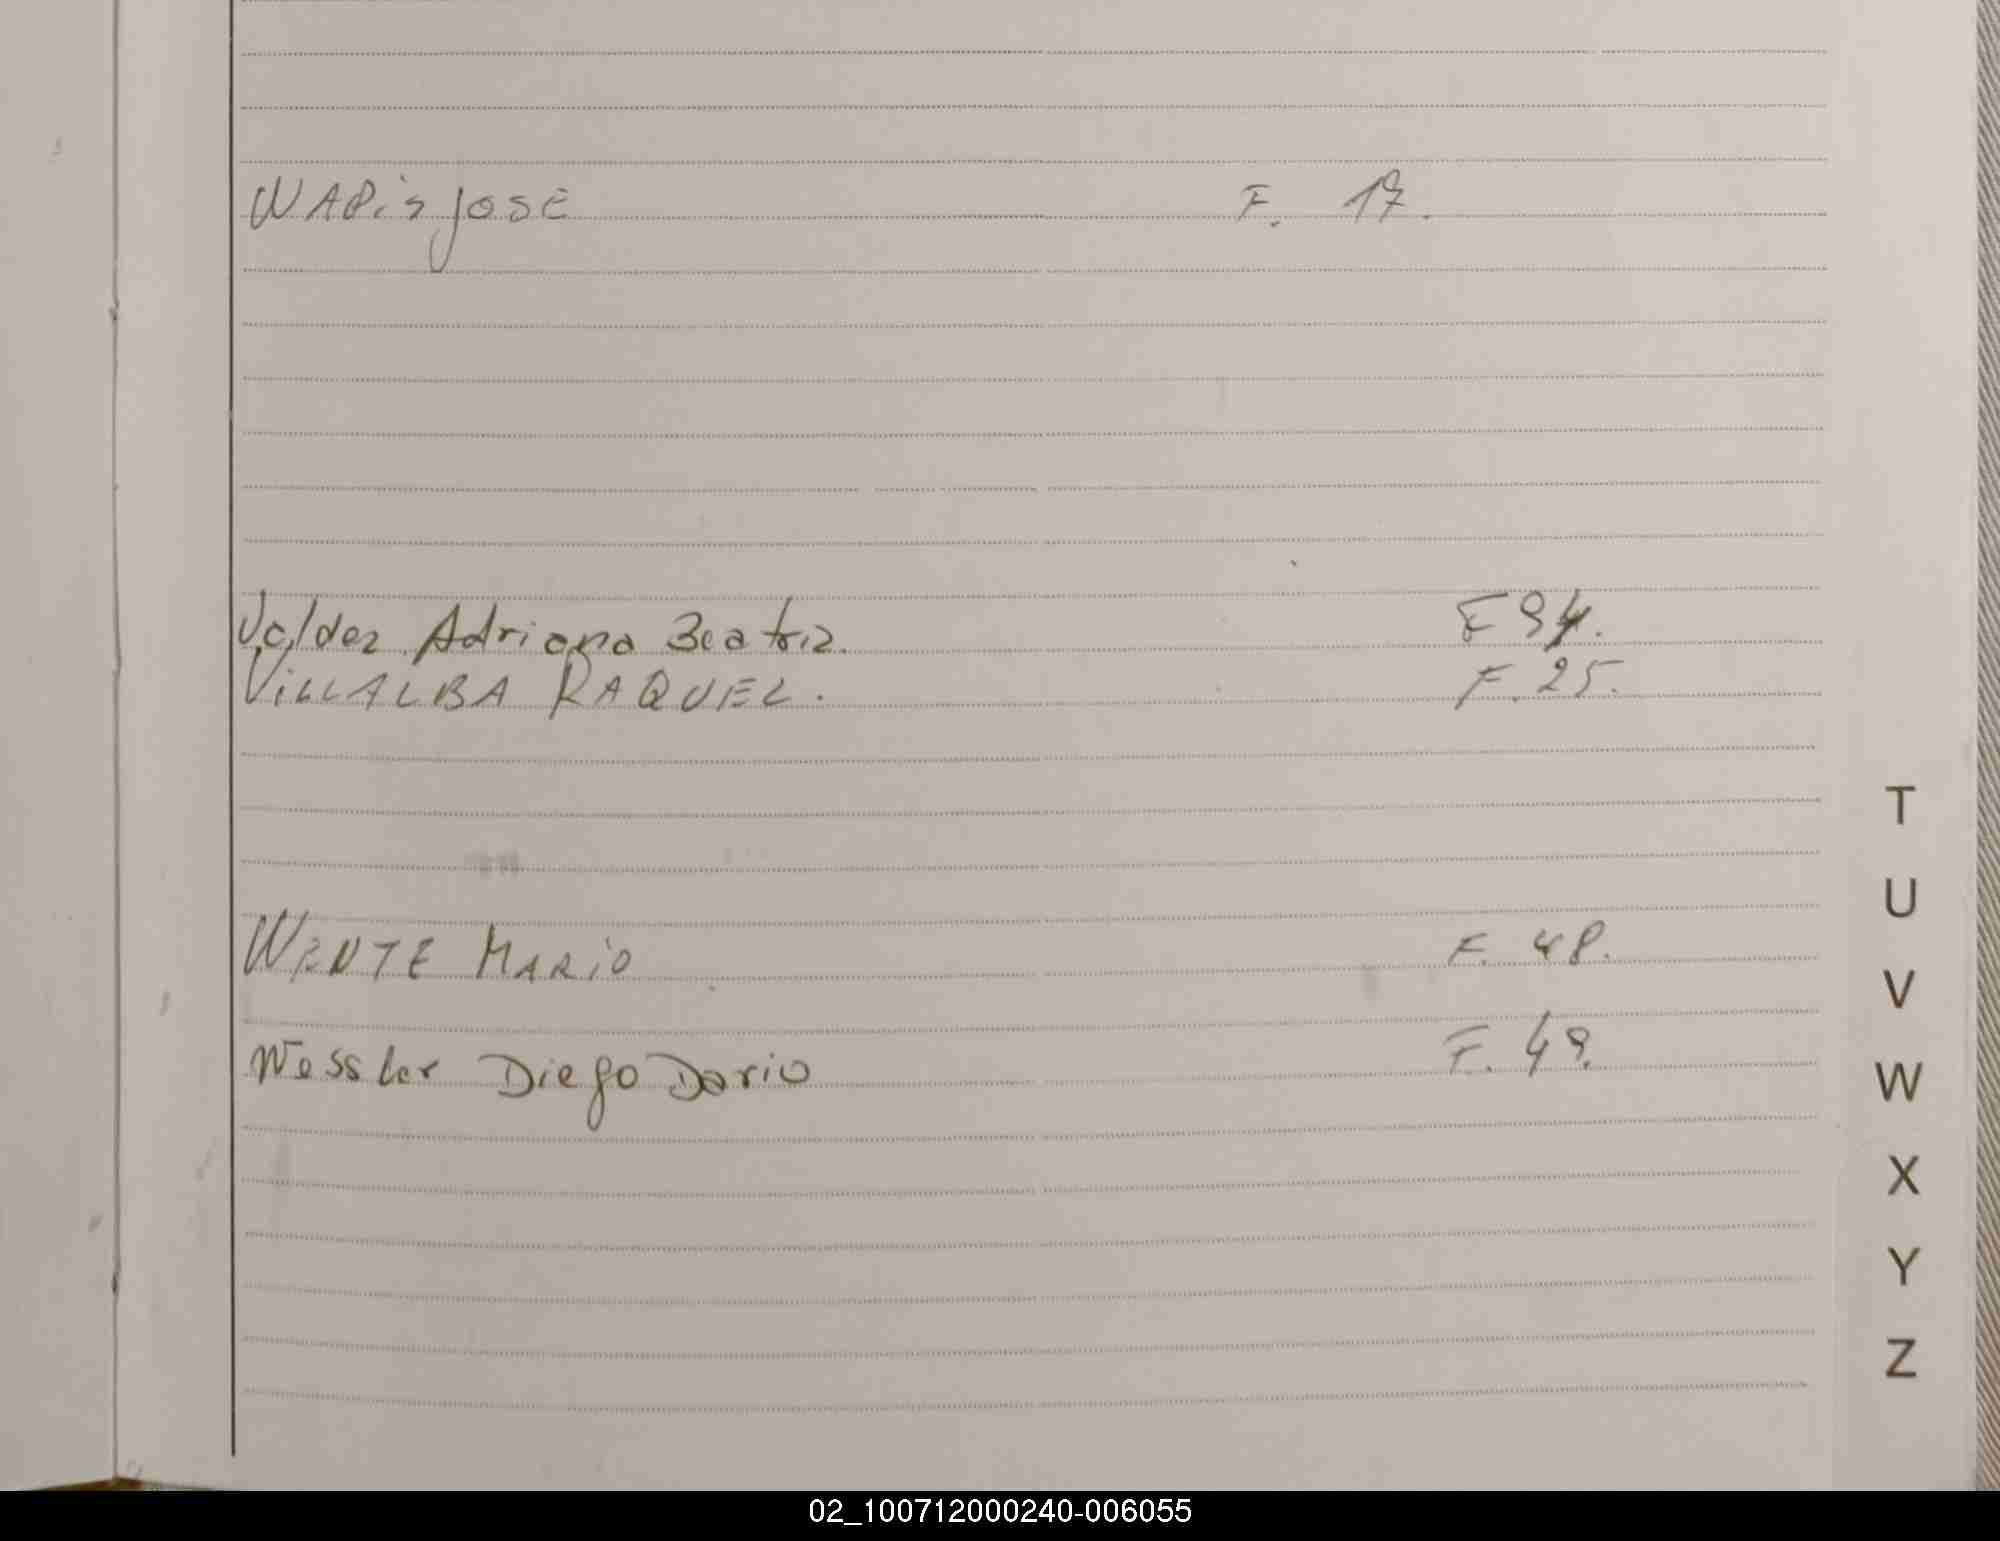 WAPiS JOSE F. 17.
Valdez Adriana Beatriz. F 94.
ViLLALBA RAQUEL. F. 25.
WENTE MARiO F. 48.
Wessler Diego Dario F. 49.
T
U
V
W
X
Y
Z
02_100712000240-006055